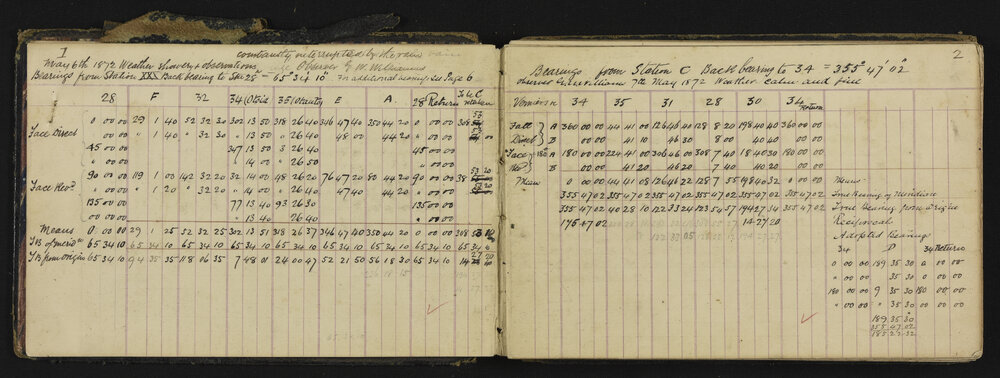 1
constantly interrupted by the rain
May 6th 1872 Weather showery observations Observer G. W. Williams
Bearings from Station XXX Back bearing to Stn 28 = 65° 34' 10" For additional bearings see Page 6
28 F 32 34 Otoid 35 E A 28 Return to C return
Face Direct
0 00 00 29 1 40 52 32 30 302 13 50 318 26 40 346 47 40 350 44 20 0 00 00 308 53
" 00 00 " 1 40 " 32 30 " 13 50 " 26 40 48 00 44 20 " 00 00
45 00 00 347 13 50 3 26 40 45 00 00
" 00 00 " 14 00 " 26 50 " 00 00
Face Rev?
90 00 00 119 1 00 142 32 20 32 14 00 48 26 20 76 47 20 80 44 20 90 00 00 38 53 20
" 00 00 " 1 20 " 32 20 " 14 00 " 26 40 47 40 44 20 " 00 00
135 00 00 77 13 40 93 26 30 135 00 00
" 00 00 " 13 40 26 40 " 00 00
Means 0 00 00 29 1 25 52 32 25 302 13 51 318 26 37 346 47 40 350 44 20 0 00 00 308 53
T B of merid 65 34 10 65 34 10 65 34 10 65 34 10 65 34 10 65 34 10 65 34 10 65 34 10 65 34
T B from Origin 65 34 10 94 35 35 118 06 35 7 48 01 24 00 47 52 21 50 56 18 30 65 34 10 14 27 20
2
Bearings from Station C Back bearing to 34 = 355° 47' 02"
7th May 1872 Weather calm and fine
Vernier 34 35 31 28 30 34 return
Face Direct A 360 00 00 44 41 00 126 46 40 128 8 20 198 40 40 360 00 00
B 00 00 41 10 46 30 8 00 40 40
Face Rev 180° A 180 00 00 224 41 00 306 46 00 308 7 40 18 40 30 180 00 00
B 00 00 41 20 46 20 7 40 40 20 00 00
Mean 0 00 00 44 41 08 126 46 22 128 7 55 198 40 32 0 00 00 Means
355 47 02 355 47 02 355 47 02 355 47 02 355 47 02 355 47 02 True Bearing of Meridian
355 47 02 40 28 10 122 33 24 123 54 57 194 27 14 355 47 02 True bearing from Origin
175 47 02 14 27 20 Reciprocal
Adopted Bearing
34 D 34 Return
0 00 00 189 35 30 0 00 00
" 00 00 " 35 30 0 00 00
180 00 00 9 35 30 180 00 00
" 00 00 " 35 30 00 00
189 35 30
355 47 02
185 22 32